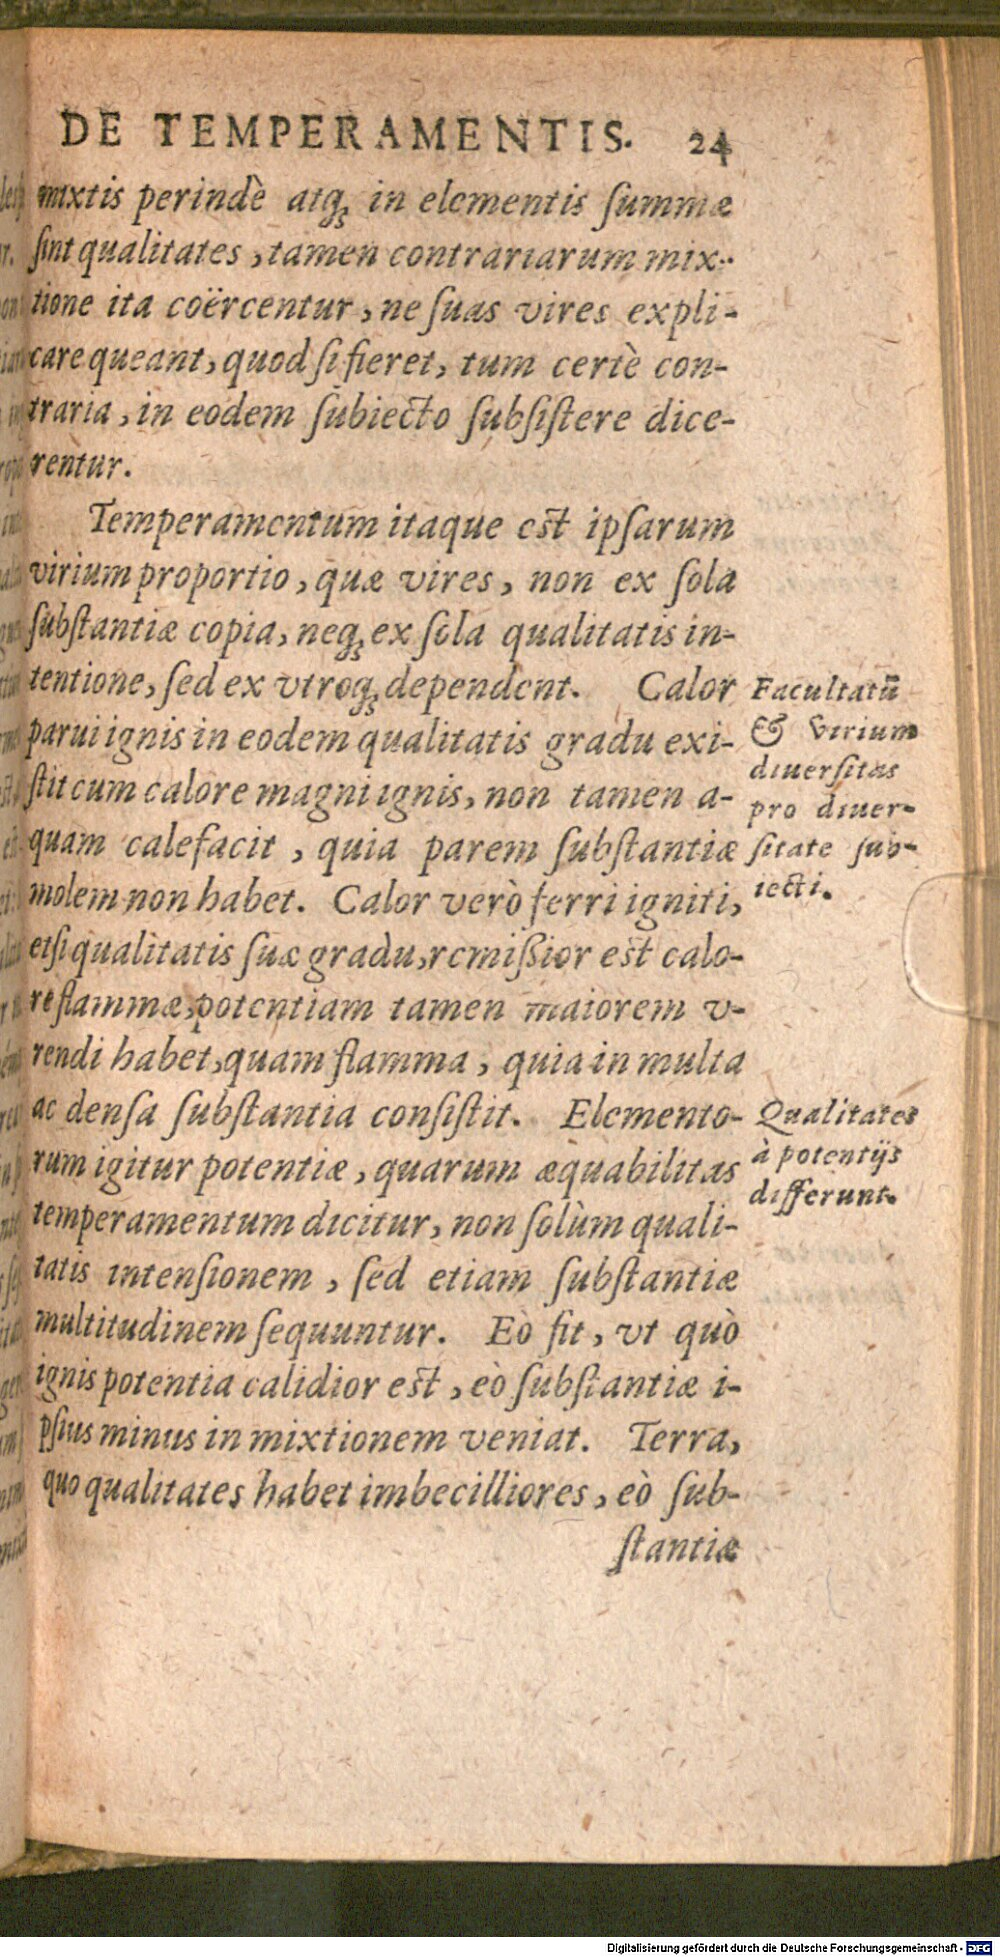 DE TEMPERAMENTIS. 24
mixtis perindè atq; in elementis ſummæ
ſint qualitates, tamen contrariarum mix-
tione ita coërcentur, ne ſuas vires expli-
care queant, quod ſi fieret, tum certè con-
traria, in eodem ſubiecto ſubſiſtere dice-
rentur.
Temperamentum itaque est ipſarum
virium proportio, quæ vires, non ex ſola
ſubſtantiæ copia, neq; ex ſola qualitatis in-
tentione, ſed ex vtroq; dependent. Calor
parui ignis in eodem qualitatis gradu exi-
ſtit cum calore magni ignis, non tamen æ-
quam calefacit, quia parem ſubſtantiæ
molem non habet. Calor verò ferri igniti,
etſi qualitatis ſuæ gradu, remißior est calo-
re flammæ, potentiam tamen maiorem v-
rendi habet, quam flamma, quia in multa
ac denſa ſubſtantia conſiſtit. Elemento-
rum igitur potentiæ, quarum æquabilitas
temperamentum dicitur, non ſolùm quali-
tatis intenſionem, ſed etiam ſubſtantiæ
multitudinem ſequuntur. Eò fit, vt quò
ignis potentia calidior est, eò ſubſtantiæ i-
pſius minus in mixtionem veniat. Terra,
quo qualitates habet imbecilliores, eò ſub-
ſtantiæ
Facultatū
& virium
diuerſitas
pro diuer-
ſitate ſub-
iecti.
Qualitates
à potentijs
differunt.
Digitalisierung gefördert durch die Deutsche Forschungsgemeinschaft - DFG